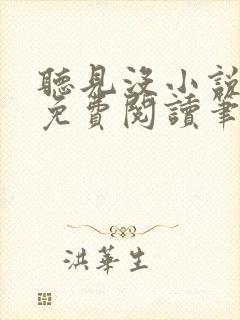 聽見沒小說
免費閱讀筆
洪華生